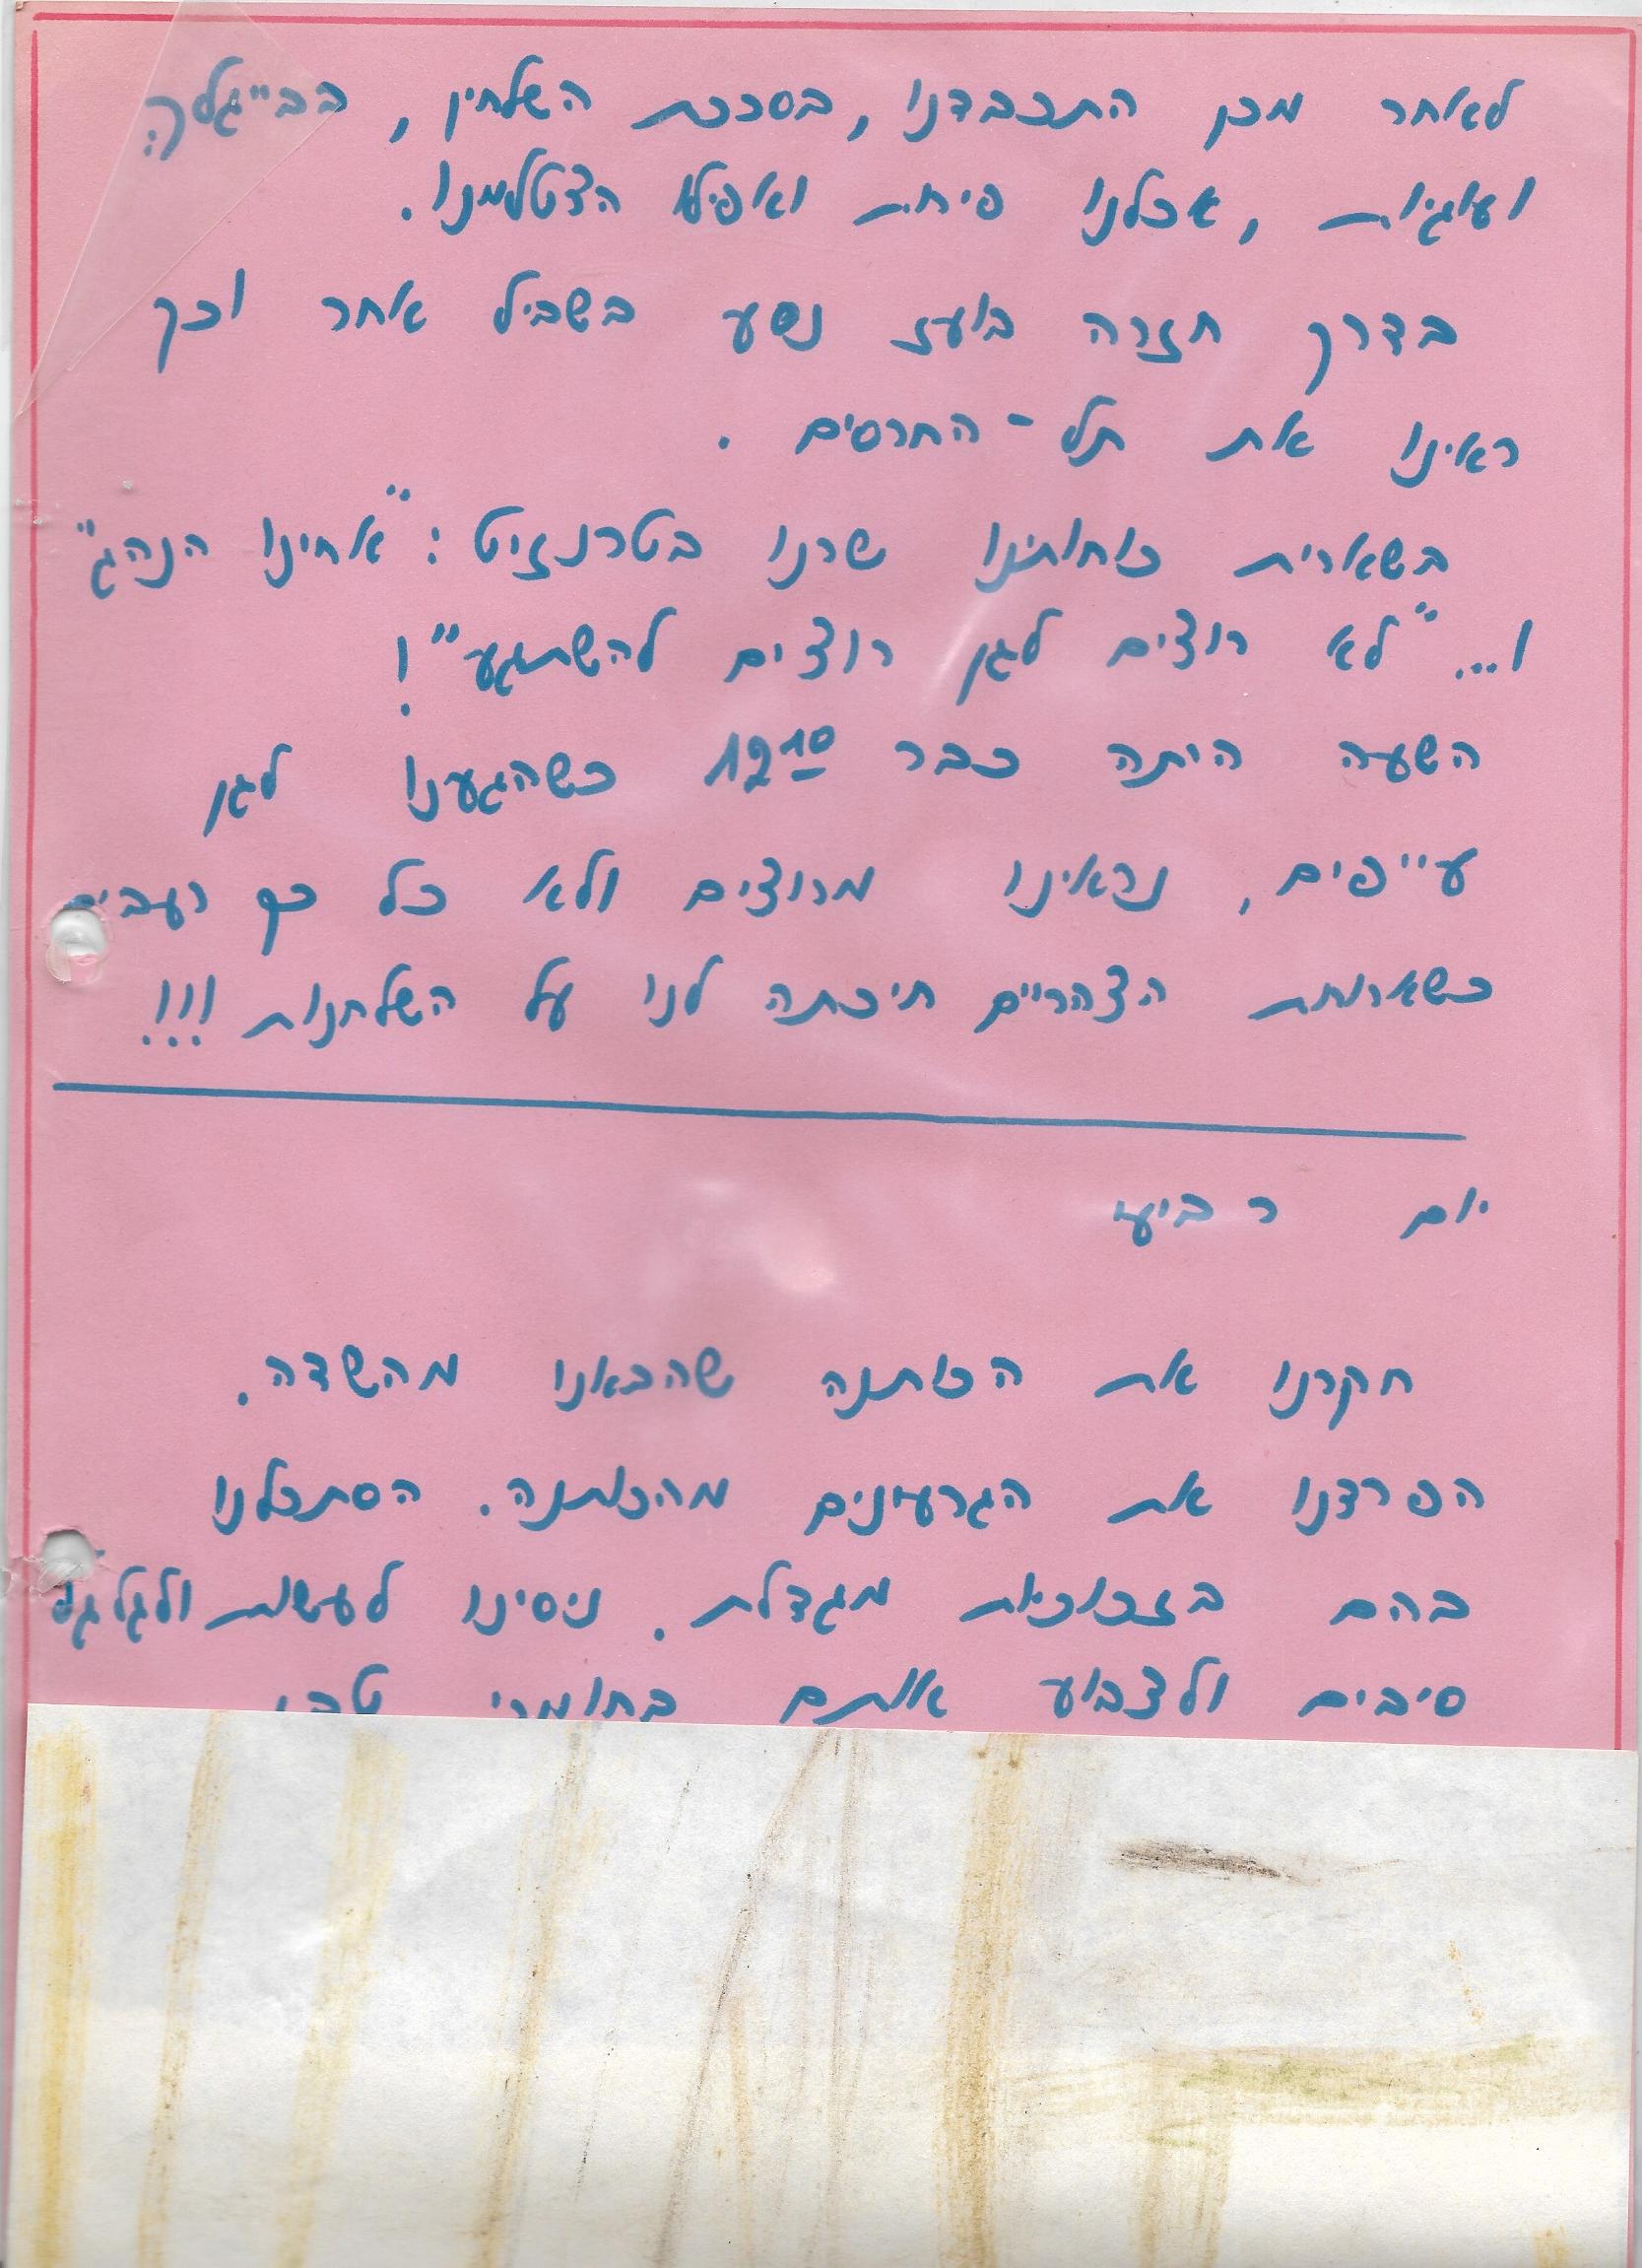 לאחר מכן התכבדנו, בסככת השלחין, בבייגלה
ועוגיות, אכלנו פירות ואפילו הצטלמנו.
בדרך חזרה בועז נסע בשביל אחר וכך
ראינו את תל-החרסים.
בשארית כוחותינו שרנו בטרנזיט: "אחינו הנהג"
ו... "לא רוצים לגן רוצים להשתגע"!
השעה היתה כבר 12¹⁰ כשהגענו לגן
עייפים, נראינו מרוצים ולא כל כך רעבים
כשארוחת הצהריים חיכתה לנו על השלחנות!!!
יום רביעי
חקרנו את הכותנה שהבאנו מהשדה.
הפרדנו את הגרעינים מהכותנה. הסתכלנו
בהם בזכוכית מגדלת. ניסינו לעשות ולגלגל
סיבים ולצבוע אותם בחומרי